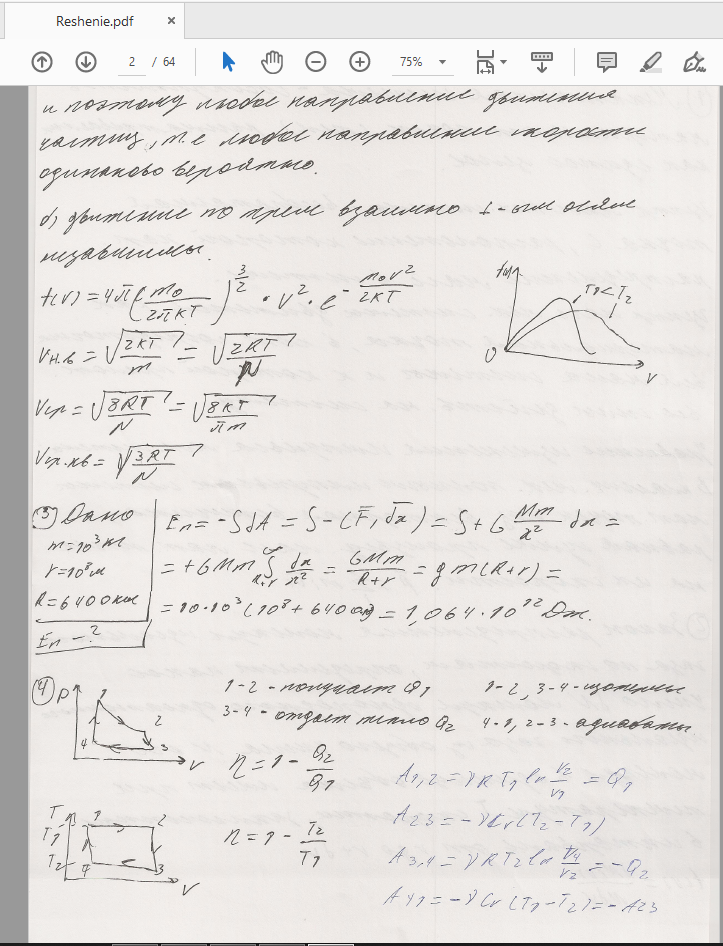 Reshenie.pdf ×
2 / 64 75%
и поэтому любое направление движения
частиц, т.е любое направление скорости
одинаково вероятно.
б) движение по трем взаимно ⊥-ым осям
независимы.
f(v) = 4π(m₀/2πkT)^(3/2) · v² · e^(-m₀v²/2kT)
f(v) T1<T2
0 v
Vн.в = √(2kT/m) = √(2RT/μ)
Vср = √(8RT/N) = √(8kT/πm)
Vср.кв = √(3RT/N)
③ Дано
m=10³кг
r=10⁸м
R=6400км
Eп -?
Eп = -∫dA = ∫-(F̄, dx̄) = ∫+G Mm/x² dx =
= +GMm ∫_(R+r)^∞ dx/x² = GMm/(R+r) = gm(R+r) =
= 10·10³(10⁸+6400) = 1,064·10¹² Дж.
④ P 1 2 3 4 V
1-2 - получает Q1 1-2, 3-4 - изотермы
3-4 - отдает тепло Q2 4-1, 2-3 - адиабаты
η = 1 - Q2/Q1
A1,2 = νRT1 ln V2/V1 = Q1
T T1 T2 1 2 3 4 V
η = 1 - T2/T1
A23 = -νCv(T2-T1)
A3,4 = νRT2 ln V4/V2 = -Q2
A41 = -νCv(T1-T2) = -A23